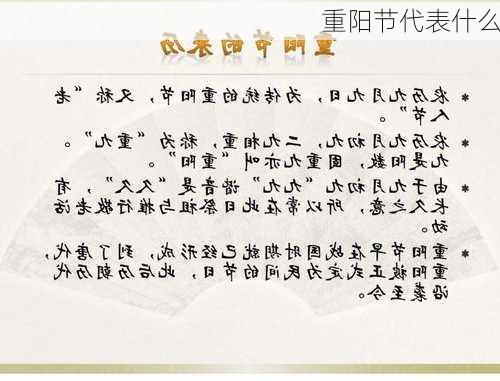 重阳节代表什么
重阳节的来历
* 农历九月九日，为传统的重阳节，又称“老
人节”。
* 农历九月初九，二九相重，称为“重九”。
九是阳数，固重九亦叫“重阳”。
* 由于九月初九“九九”谐音是“久久”，有
长久之意，所以常在此日祭祖与推行敬老活
动。
* 重阳节早在战国时期就已经形成，到了唐代，
重阳被正式定为民间的节日，此后历朝历代
沿袭至今。